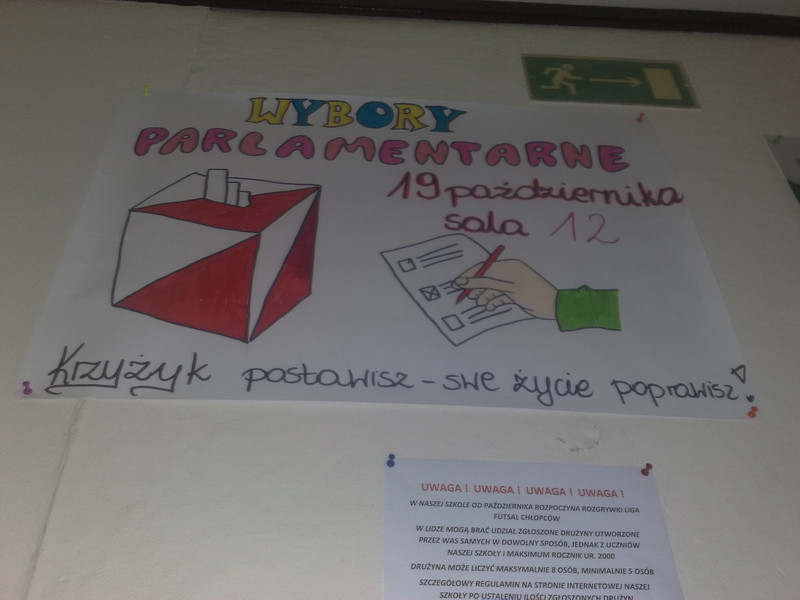 WYBORY
PARLAMENTARNE
19 października
sala 12
Krzyżyk postawisz - swe życie poprawisz!
UWAGA ! UWAGA ! UWAGA ! UWAGA !
W NASZEJ SZKOLE OD PAŹDZIERNIKA ROZPOCZYNA ROZGRYWKI LIGA
FUTSAL CHŁOPCÓW
W LIDZE MOGĄ BRAĆ UDZIAŁ ZGŁOSZONE DRUŻYNY UTWORZONE
PRZEZ WAS SAMYCH W DOWOLNY SPOSÓB, JEDNAK Z UCZNIÓW
NASZEJ SZKOŁY I MAKSIMUM ROCZNIK UR. 2000
DRUŻYNA MOŻE LICZYĆ MAKSYMALNIE 8 OSÓB, MINIMALNIE 5 OSÓB
SZCZEGÓŁOWY REGULAMIN NA STRONIE INTERNETOWEJ NASZEJ
SZKOŁY PO USTALENIU ILOŚCI ZGŁOSZONYCH DRUŻYN